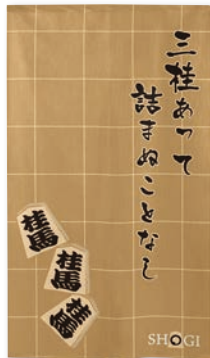 三桂あって
詰まぬことなし
桂馬
桂馬
桂馬
SHOGI